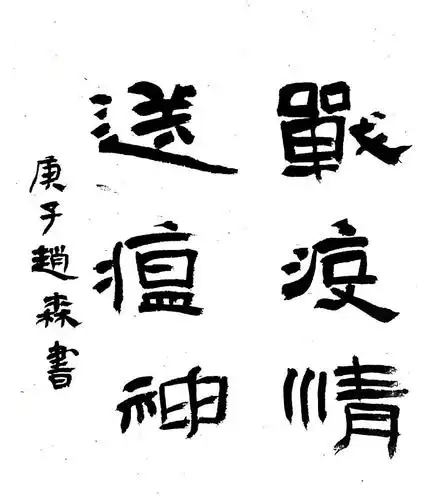 戰疫情
送瘟神
庚子趙森書